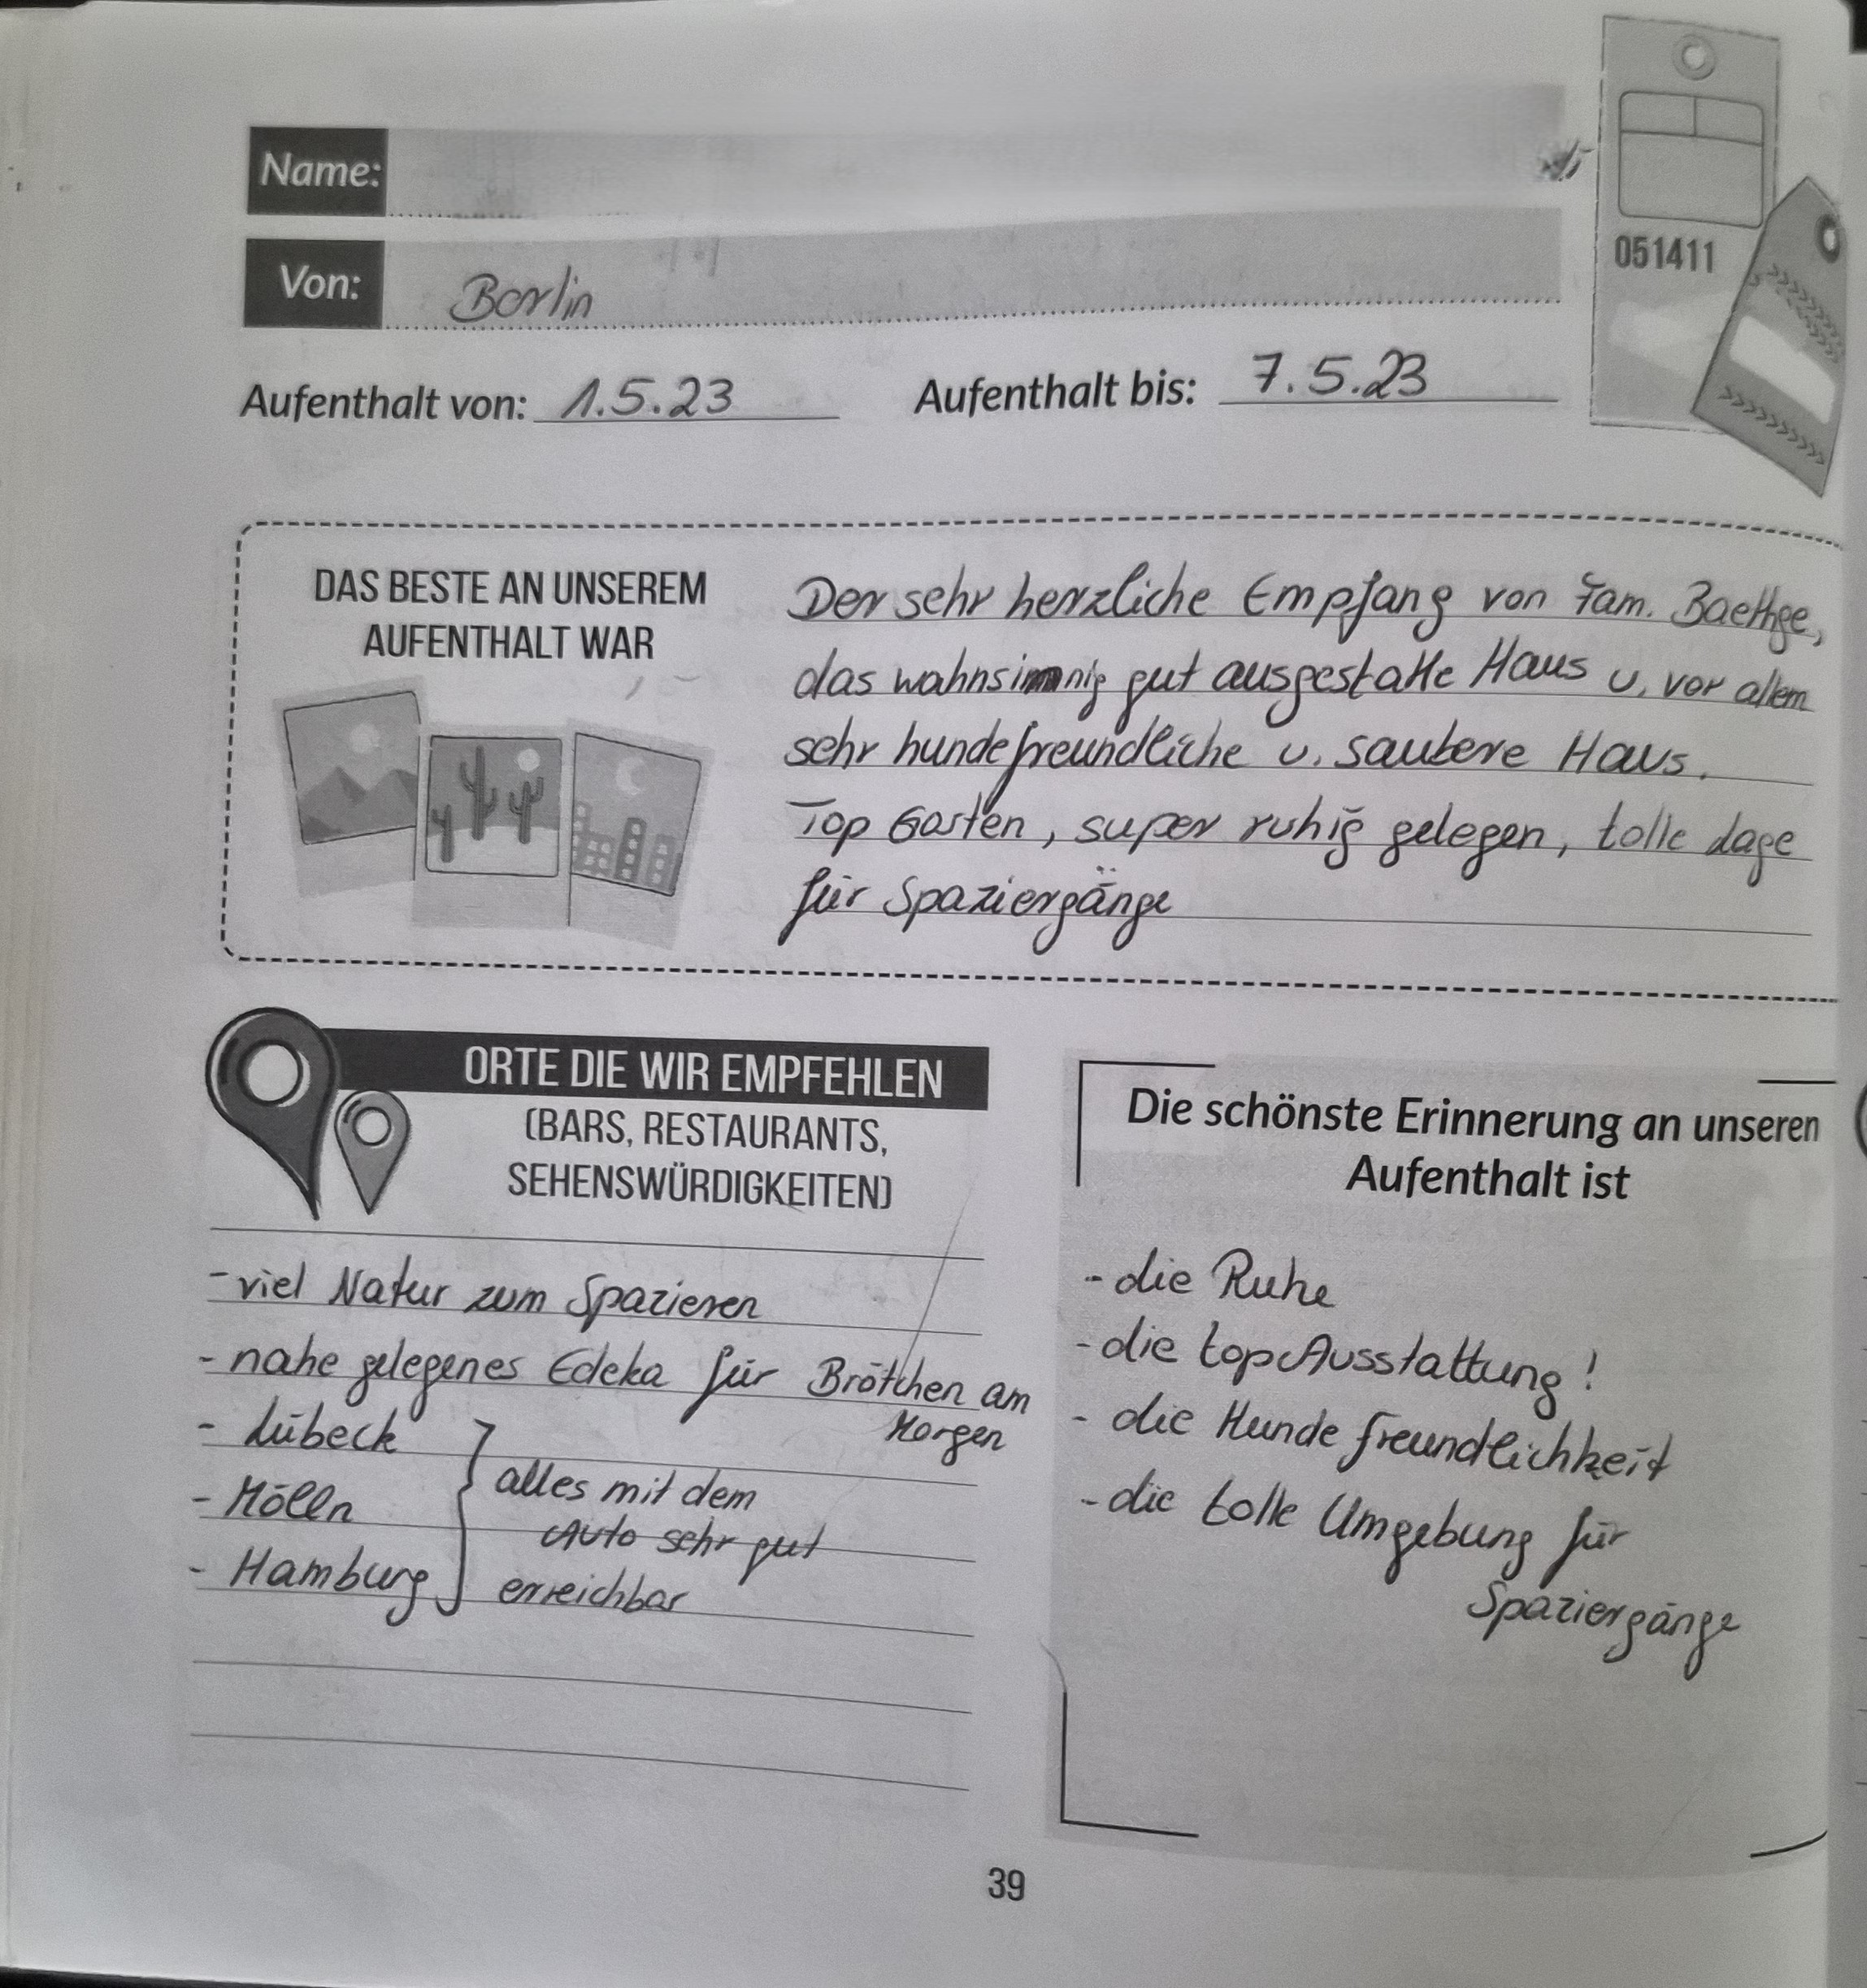 Name:
Von: Berlin
051411
Aufenthalt von: 1.5.23 Aufenthalt bis: 7.5.23
DAS BESTE AN UNSEREM
AUFENTHALT WAR
Der sehr herzliche Empfang von Fam. Baethge,
das wahnsinnig gut ausgestatte Haus u. vor allem
sehr hundefreundliche u. saubere Haus.
Top Garten, super ruhig gelegen, tolle Lage
für Spaziergänge
ORTE DIE WIR EMPFEHLEN
(BARS, RESTAURANTS,
SEHENSWÜRDIGKEITEN)
- viel Natur zum Spazieren
- nahe gelegenes Edeka für Brötchen am
Morgen
- Lübeck
- Mölln
- Hamburg
alles mit dem
Auto sehr gut
erreichbar
Die schönste Erinnerung an unseren
Aufenthalt ist
- die Ruhe
- die top Ausstattung!
- die Hundefreundlichkeit
- die tolle Umgebung für
Spaziergänge
39